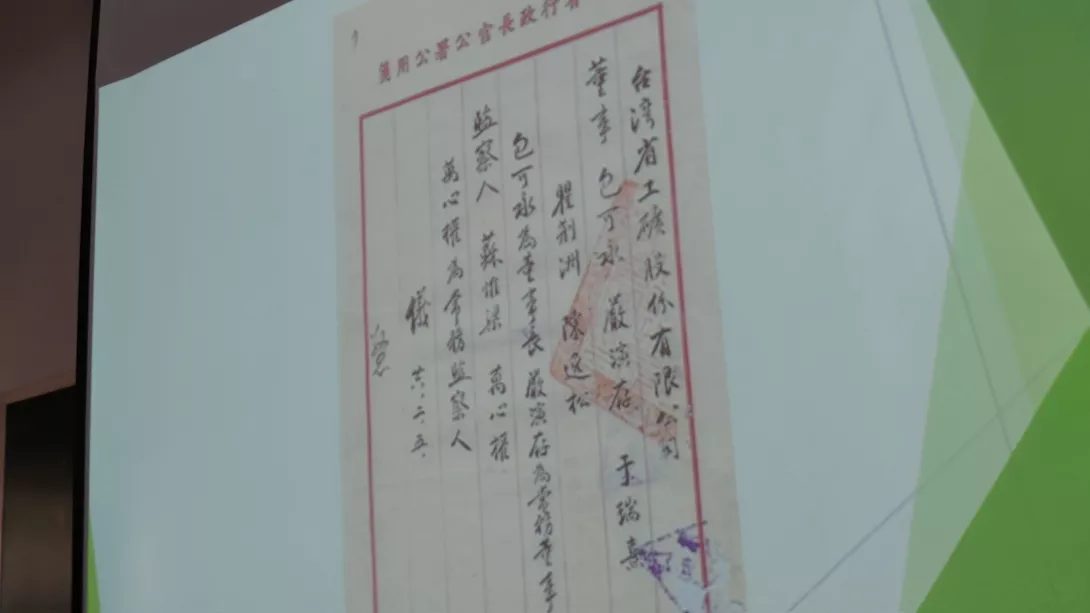 行政長官公署公用箋
台湾省工礦股份有限公司
董事 包可永 嚴演存 于瑞熹
瞿荆洲 陳逸松
包可永為董事長 嚴演存為常務董事
監察人 蘇惟梁 萬心權
萬心權為常務監察人
儀 二.五.